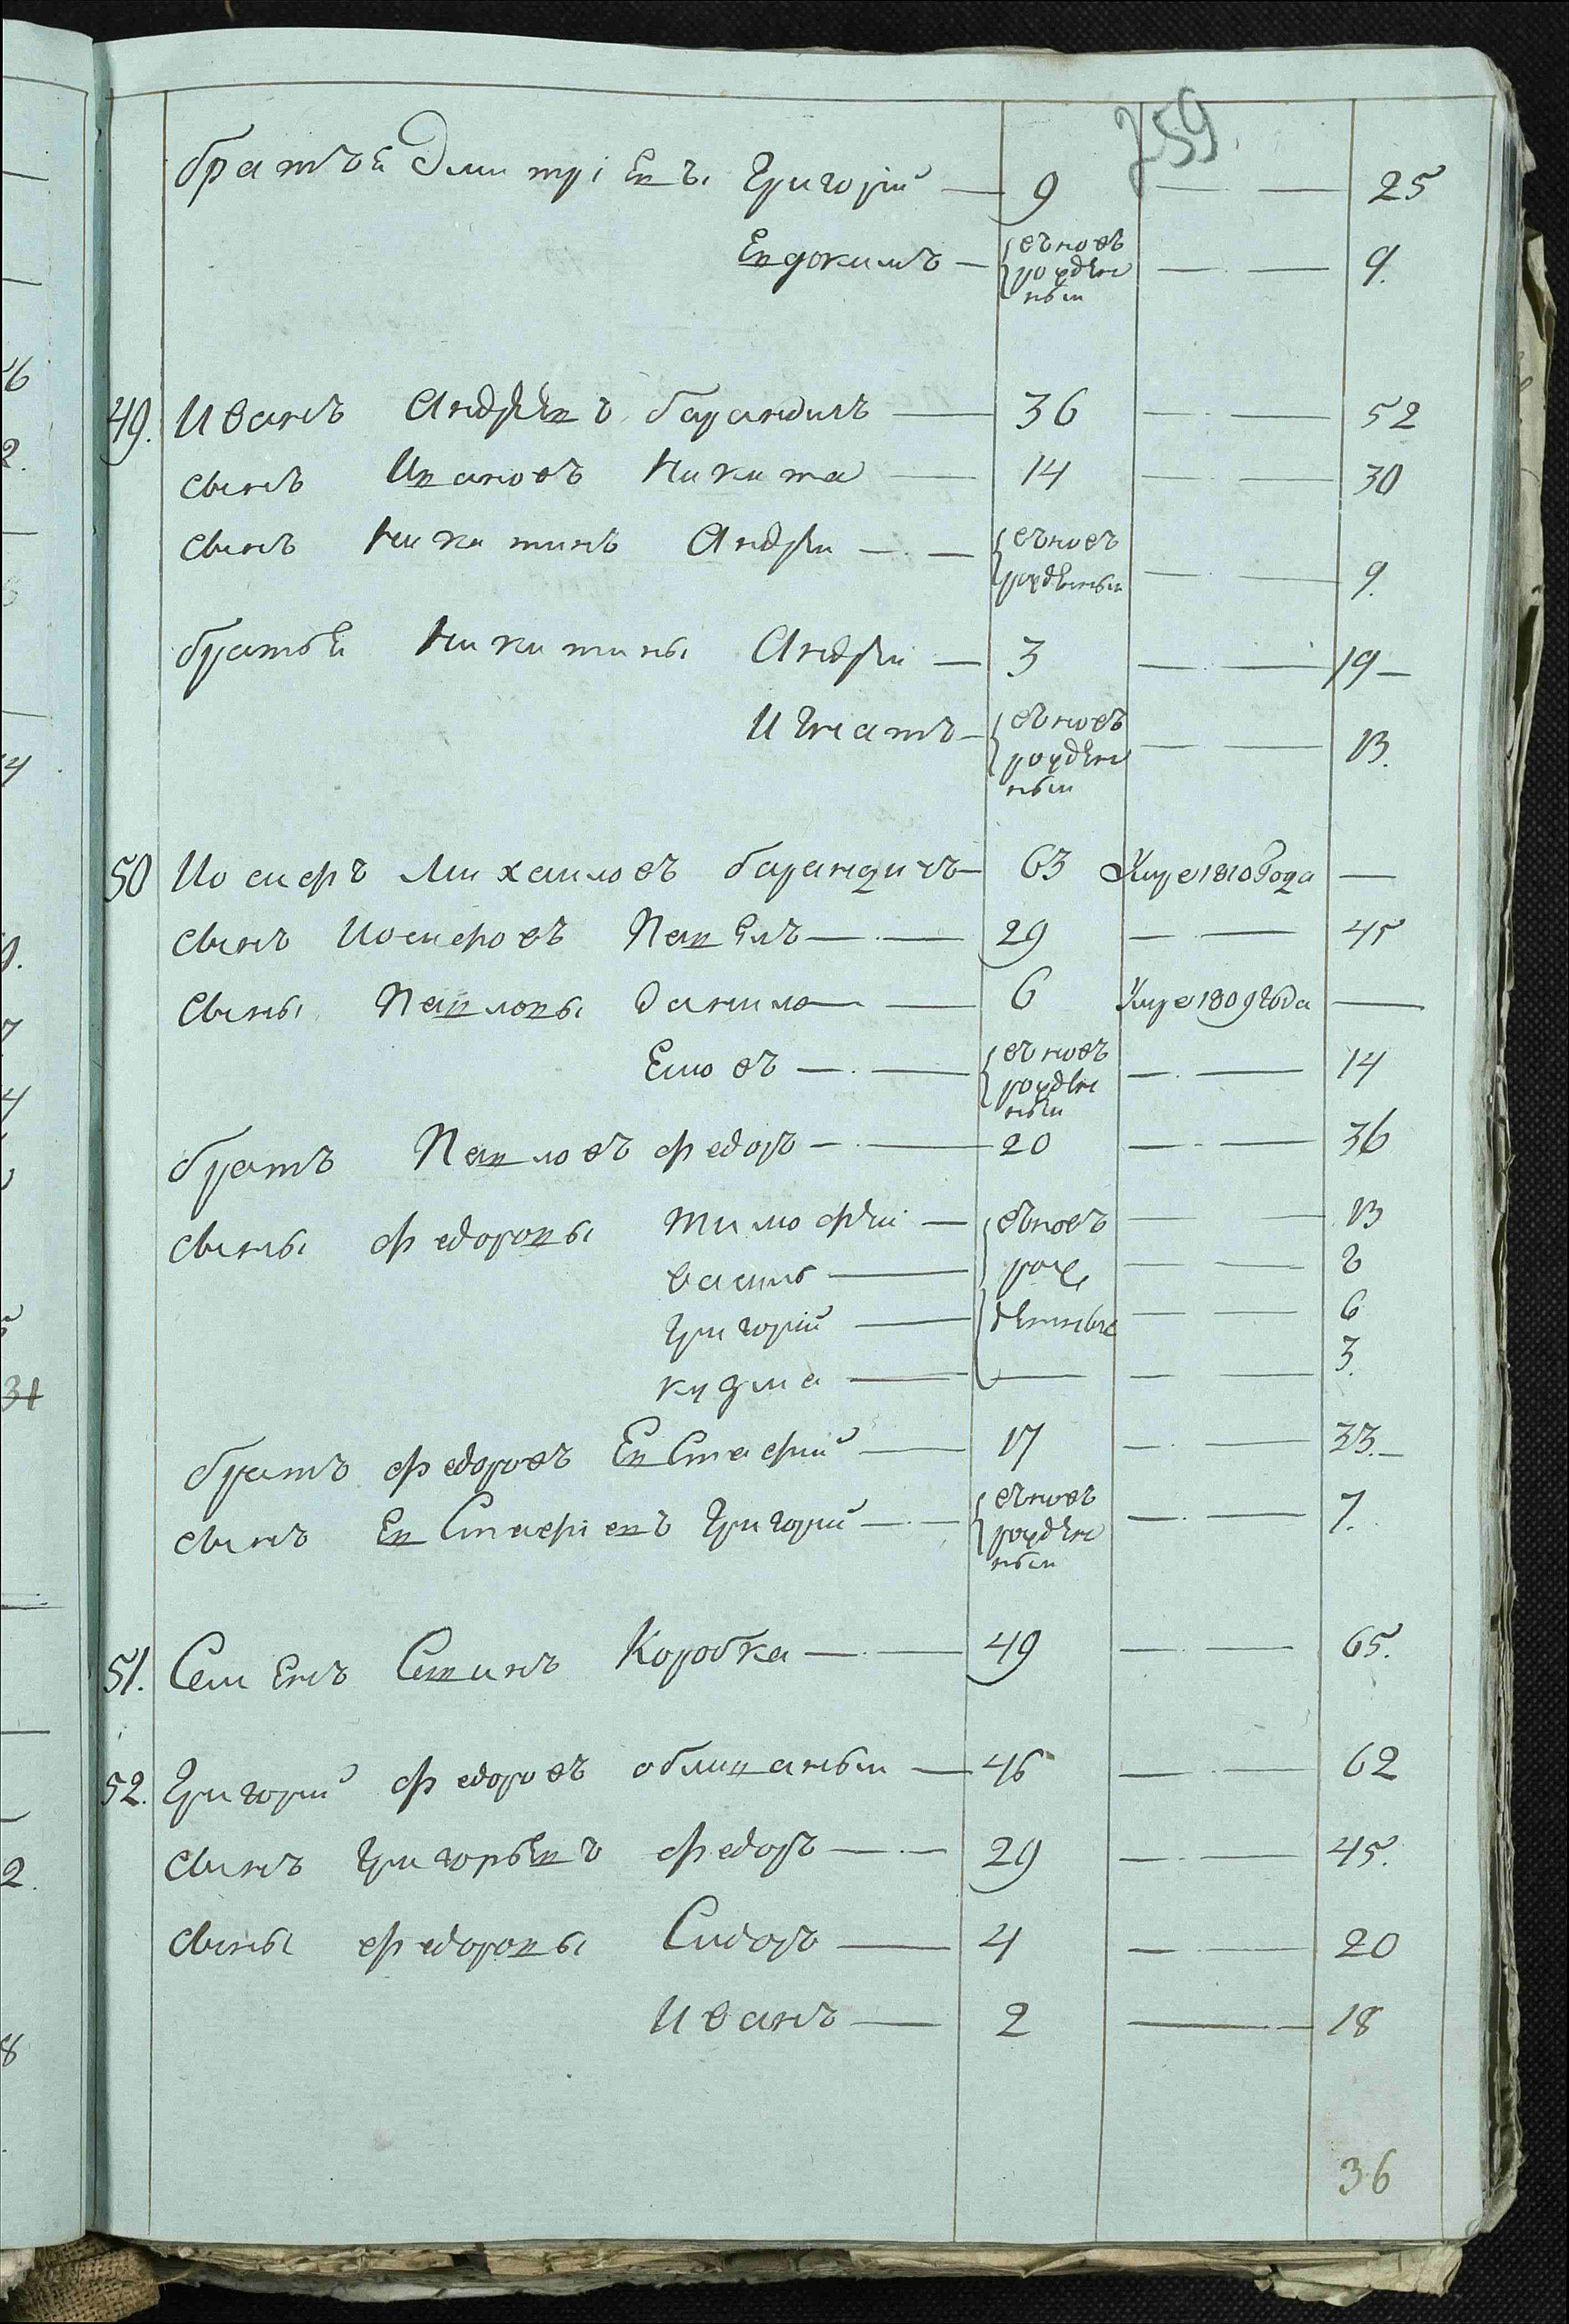 259.
братьѣ Дмитріевы Григорій — 9 — — 25
Евдокимъ — вновь рожденный — — 9.
49. Иванъ Андрѣевъ Барандичъ — 36 — — 52
сынъ Ивановъ Никита — 14 — — 30
сынъ Никитинъ Андрѣй — — вновь рожденный — — 9.
братьѣ Никитины Андрѣй — 3 — — 19 —
Игнатъ — вновь рожденный — — 13.
50 Иосифъ Михайловъ Барандичъ — 63 Умре 1810 года —
сынъ Иосифовъ Павѣлъ — — 29 — — 45
сыны Павловы Данило — — 6 Умре 1809 года —
— — вновь рожденный — — 14
братъ Павловъ Федоръ — — 20 — — 36
сыны Федоровы Тимофѣй — вновь — — 13
Василь — рож — — 8
Григорій — денные — — 6
Кузма — — — — 3.
братъ Федоровъ Евстафий — 17 — — 33. —
сынъ Евстафіевъ Григорий — — вновь рожденный — — 7.
51. Семенъ Савинъ Коробка — — 49 — — 65.
52. Григорий Федоровъ — 46 — — 62
сынъ Григорьевъ Федоръ — — 29 — — 45.
сыны Федоровы Сидоръ — 4 — — 20
Иванъ — 2 — — 18
36